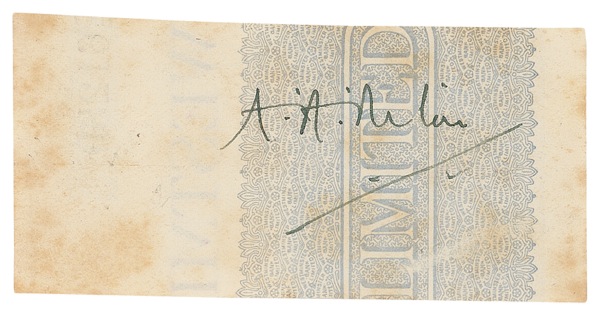 A. A. Milne
LIMITED